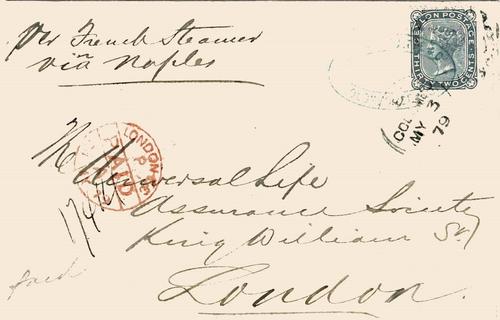 Per French Steamer
via Naples
CEYLON POSTAGE
THIRTY TWO CENTS
MY 3
79
LONDON
PAID
The Universal Life
Assurance Society
King William St
London.